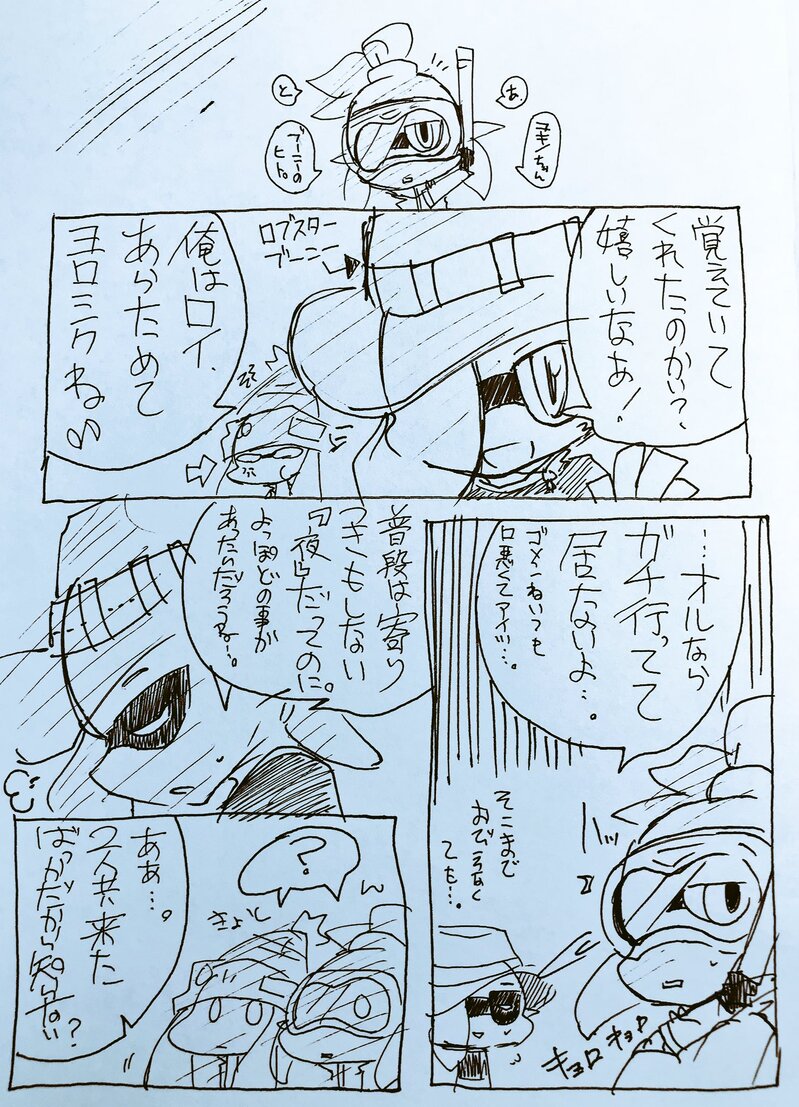 あ、
と
ブーニーの
ヒト。
覚えていて
くれたのかい?、
嬉しいなあ!
ロブスター
ブーニー
俺はロイ、
あらためて
ヨロシクね♪
…オルなら
ガチ行ってて
居ないよ…。
ゴメンねいつも
口悪くてアイツ…。
ハッ
キョロキョロ
そこまで
おびえなく
ても…。
普段は寄り
つきもしない
『夜』だってのに。
よっぽどの事が
あったんだろうね…。
?
ん
ああ…。
2人共来た
ばっかだから知らない?